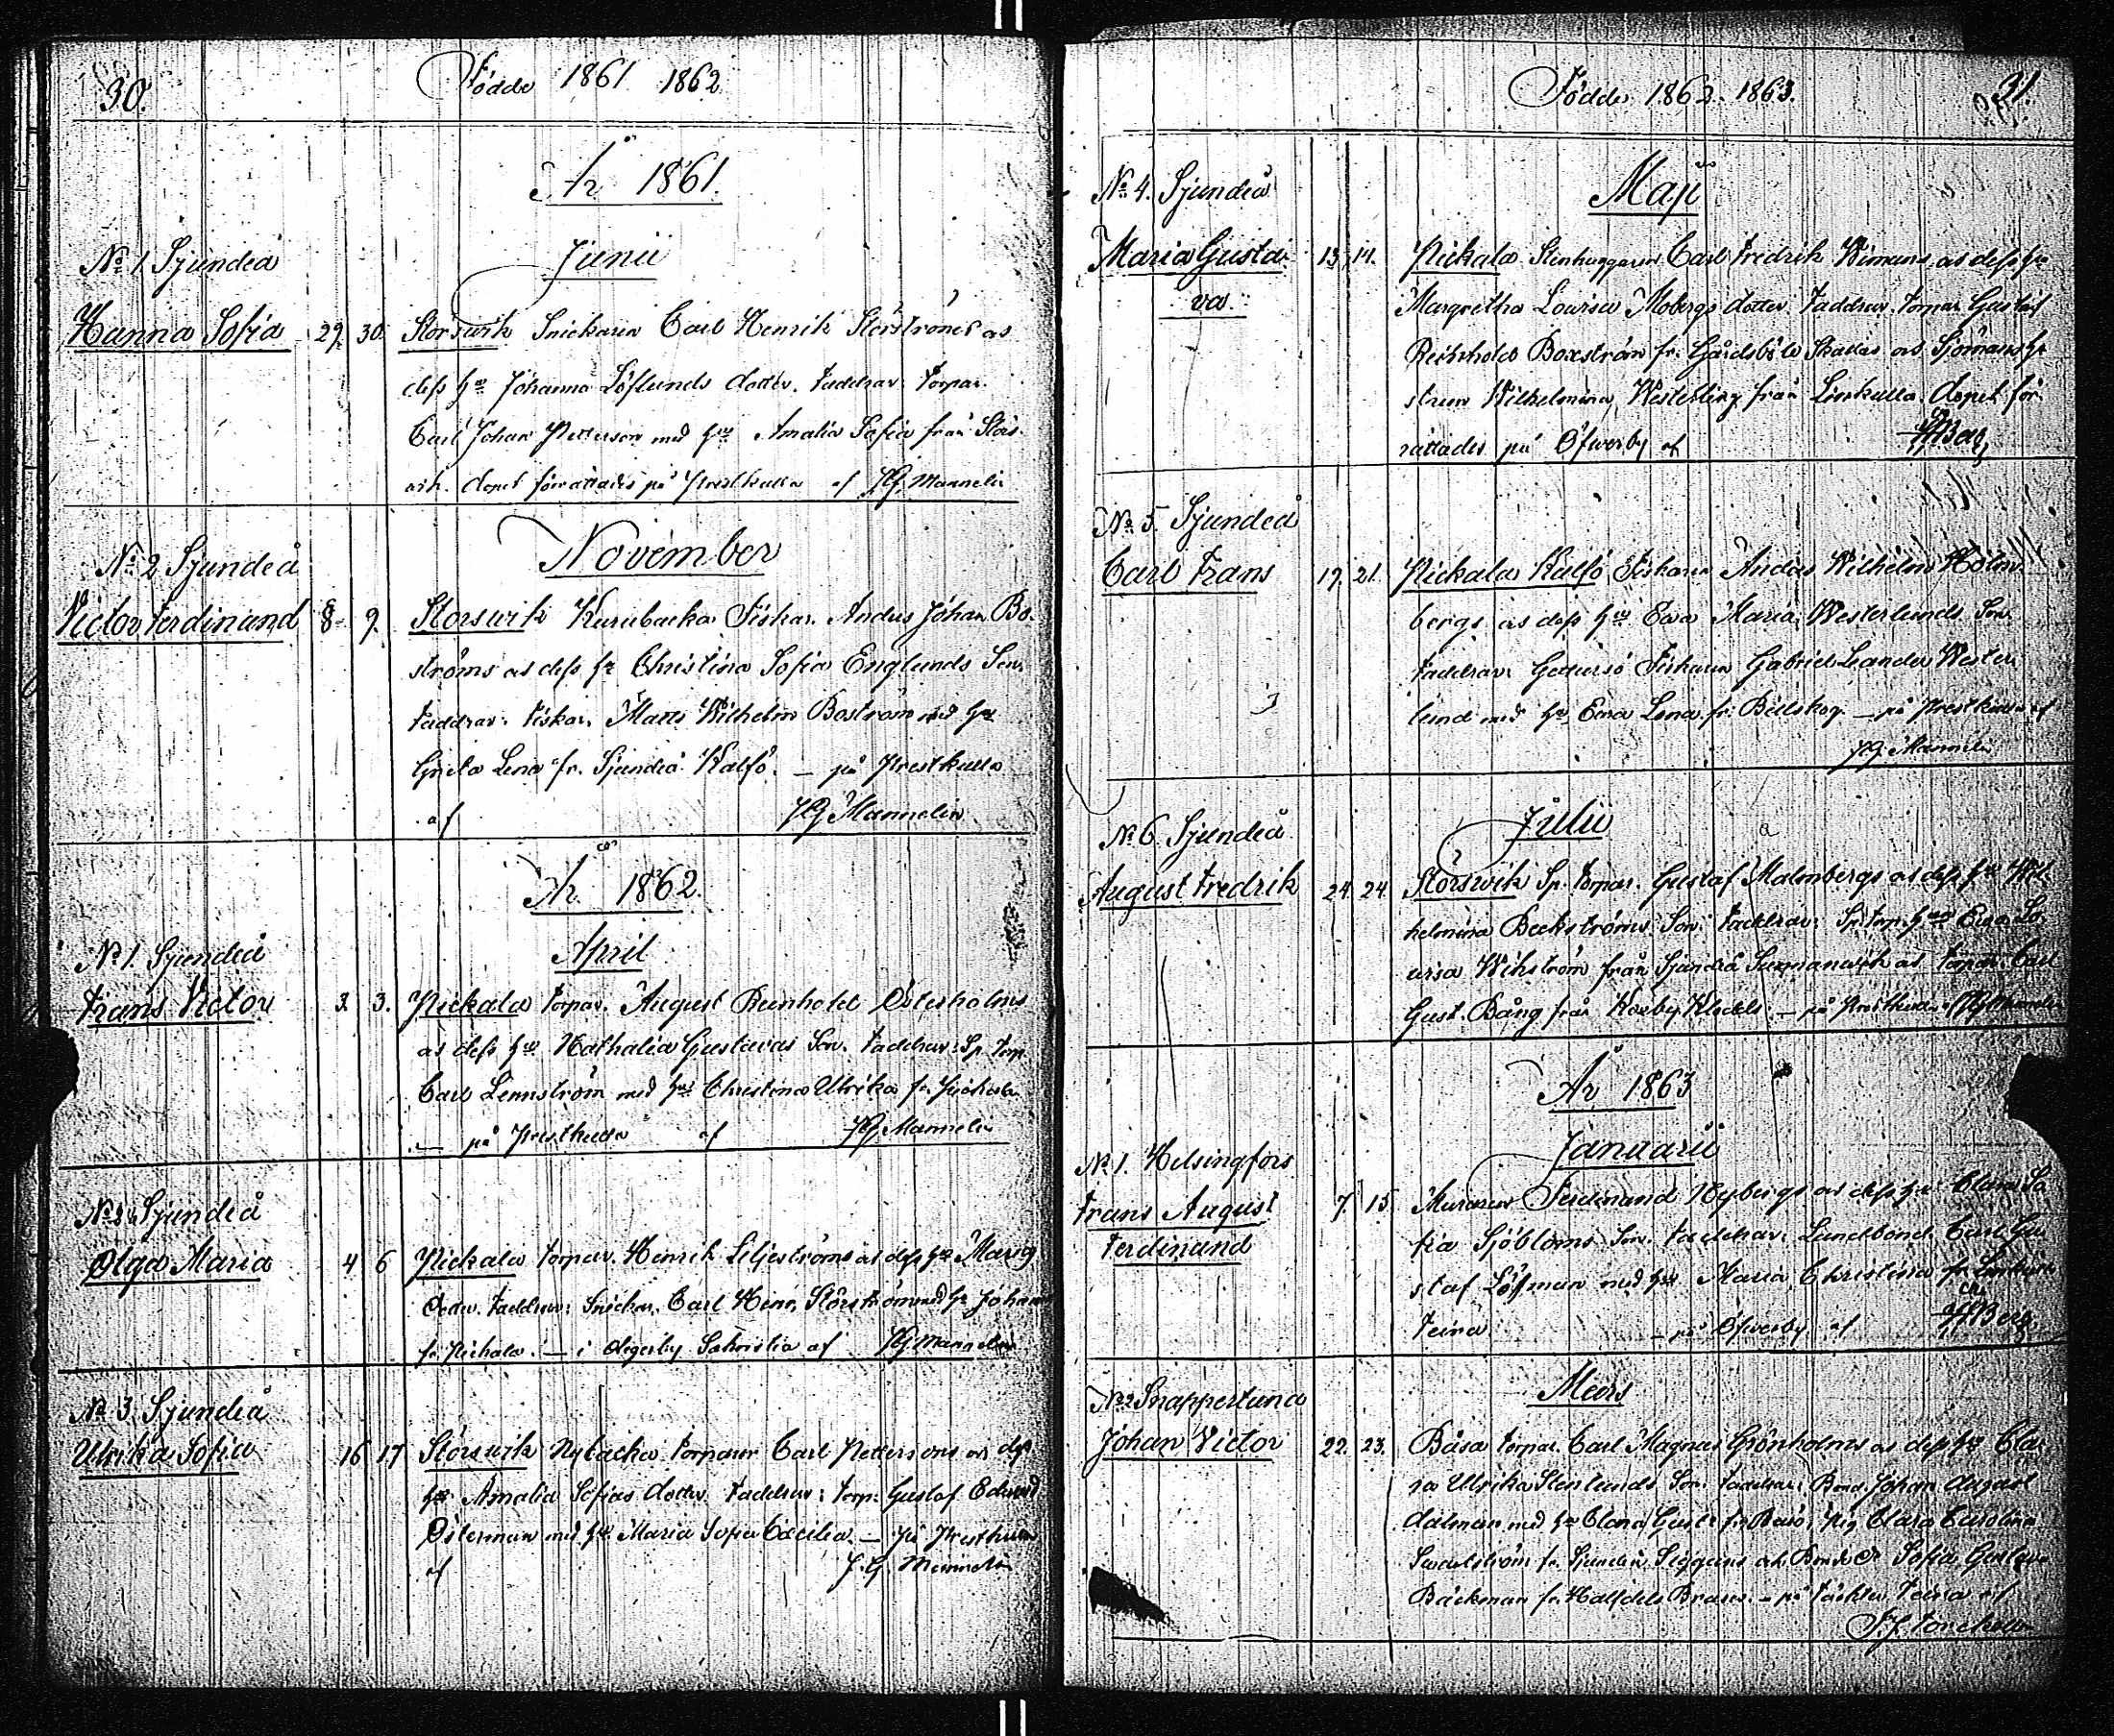 30.
Födde 1861 1862
År 1861.
Junii
No 1. Sjundeå
Hanna Sofia 29. 30. Storswik Snickaren Carl Henrik Störströms os
dess hu Johanna Löflunds dotter. Faddrar: Torpar.
Carl Johan Petterson med hu Amalia Sofia från Stors-
wik. dopet förrättades på Prestkulla af J.G. Mannelin
November
No 2 Sjundeå
Victor Ferdinand 8 9. Storswik Kurubacka Fiskar. Anders Johan Bo-
ströms os dess hu Christina Sofia Englunds Son.
Faddrar: Fiskar. Matts Wilhelm Boström med hu
Greta Lena fr. Sjundeå Kalfö. — på Prestkulla
af J.G. Mannelin
År 1862.
April
No 1. Sjundeå
Frans Victor 3. 3. Pickala torpar. August Reinhold Österholms
os dess hu Nathalia Gustavas Son. Faddrar: Sp. torp.
Carl Lennström med hu Christina Ulrika fr.
— på Prestkulla af J.G. Mannelin
No 2 Sjundeå
Olga Maria 4 6 Pickala torpar. Henrik Liljeströms os dess hu Maria
Dotter. Faddrar: Snickar. Carl Henr. Störström med hu Johanna
fr. Pickala. — i Degerby Sakristia af J.G. Mannelin
No 3. Sjundeå
Ulrika Sofia 16 17 Störswik Nybacka torparen Carl Pettersons os dess
hu Amalia Sofias dotter. Faddrar: torp. Gustaf Edvard
Österman med hu Maria Sofia Cæcilia. — på Prestkulla
af J.G. Mannelin
Födde 1862. 1863.
31.
No 4. Sjundeå
Maji
Maria Gusta- 13. 14. Pickala Stenhuggaren Carl Fredrik Wimans os dess hu
va. Margretha Lovisa Mobergs dotter. Faddrar. Torpar. Gustaf
Reinhold Boxström fr. Gårdsböle Skallas os Sjömanshu-
strun Wilhelmina Westerling från Linkulla. Dopet för-
rättades på Öfwerby af Berg
No 5. Sjundeå
Carl Frans 19. 21. Pickala Kalfö Fiskaren Anders Wilhelm Holm-
bergs os dess hu Ewa Maria Westerlunds Son
Faddrar: Fiskaren Gabriel Leander Wester-
lund med hu Ewa Lena fr. Billskog. — på Prestkulla af
J.G. Mannelin
Julii
No 6 Sjundeå
August Fredrik 24. 24. Störswik Sp. torpar. Gustaf Malmbergs os dess hu Wil-
helmina Beckströms Son. Faddrar: Sp. torp. hu Ewa Lo-
wisa Wikström från Sjundeå os torpar. Carl
Gust. Bång från Koxby — på Prestkulla af J.G. Mannelin
År 1863
Januarii
No 1. Helsingfors
Frans August 7. 15. Muraren Ferdinand Nybergs os dess hu Clara So-
Ferdinand fia Sjöbloms Son. Faddrar: Landbond. Carl Gu-
staf Löfman med hu Maria Christina fr.
— på Öfwerby af Berg
Mars
No 2 Snappertuna
Johan Victor 22. 23. Båsa torpar. Carl Magnus Grönholms os dess hu Cla-
ra Ulrika Stenlunds Son. Faddrar: Bond. Johan August
Dalman med hu Clara Gust. fr. Båsö, Pig. Clara Carolina
fr. Sjundeå Siggans och Sofia Gustava
Bäckman fr. — på af